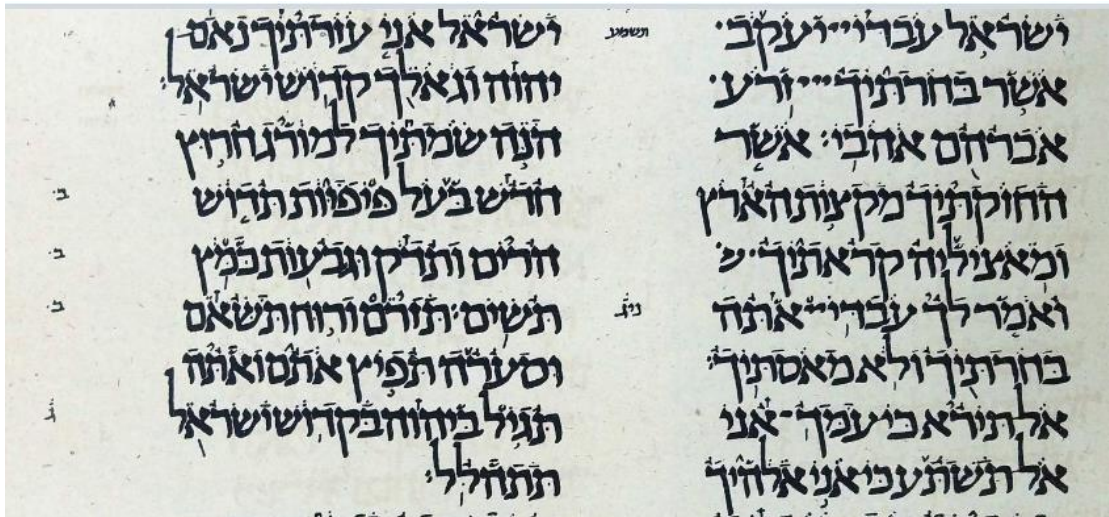 ישראל עבדי יעקב
אשר בחרתיך זרע
אברהם אהבי׃ אשר
החזקתיך מקצות הארץ
ומאציליה קראתיך
ואמר לך עבדי אתה
בחרתיך ולא מאסתיך׃
אל תירא כי עמך אני
אל תשתע כי אני אלהיך
תשמע
ישראל אני עזרתיך נאם
יהוה וגאלך קדוש ישראל׃
הנה שמתיך למורג חרוץ
חדש בעל פיפיות תדוש
הרים ותדק וגבעות כמץ
תשים׃ תזרם ורוח תשאם
וסערה תפיץ אתם ואתה
תגיל ביהוה בקדוש ישראל
תתהלל׃
ב
ב
ב
ג